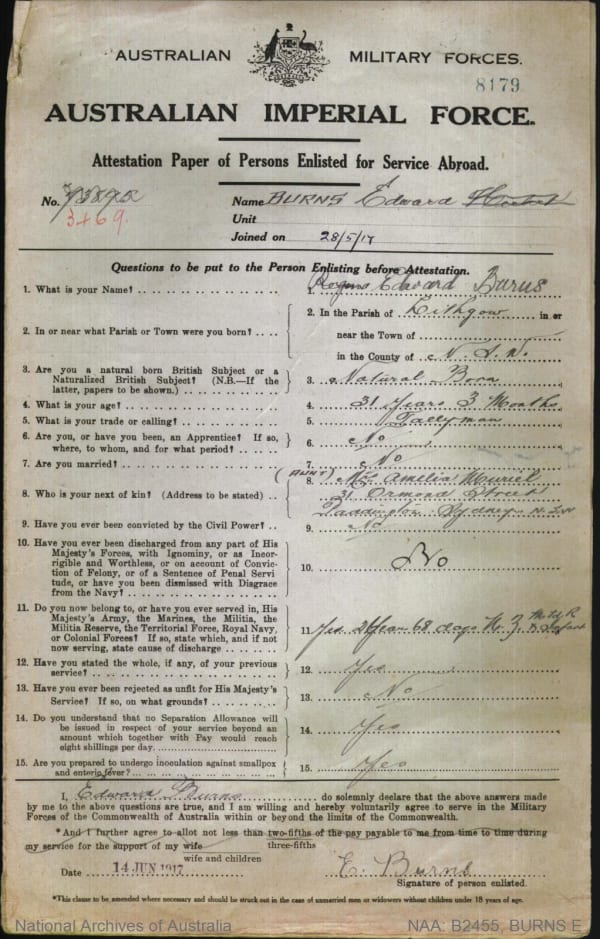 AUSTRALIAN MILITARY FORCES.
8179
AUSTRALIAN IMPERIAL FORCE.
Attestation Paper of Persons Enlisted for Service Abroad.
No. 3469.
Name BURNS Edward
Unit
Joined on 28/5/17
Questions to be put to the Person Enlisting before Attestation.
1. What is your Name? 1. Edward Burns
2. In or near what Parish or Town were you born? 2. In the Parish of Lithgow in or
near the Town of
in the County of N.S.W.
3. Are you a natural born British Subject or a
Naturalized British Subject? (N.B.—If the
latter, papers to be shown.) 3. Natural Born
4. What is your age? 4. 31 Years 3 Months
5. What is your trade or calling? 5. Tallyman
6. Are you, or have you been, an Apprentice? If so,
where, to whom, and for what period? 6. No
7. Are you married? 7. No
8. Who is your next of kin? (Address to be stated) 8. (AUNT) Mrs Amelia Muriel
31 Ormond Street
Paddington Sydney N.S.W
9. Have you ever been convicted by the Civil Power? 9. No
10. Have you ever been discharged from any part of His
Majesty's Forces, with Ignominy, or as Incor-
rigible and Worthless, or on account of Convic-
tion of Felony, or of a Sentence of Penal Servi-
tude, or have you been dismissed with Disgrace
from the Navy? 10. No
11. Do you now belong to, or have you ever served in, His
Majesty's Army, the Marines, the Militia, the
Militia Reserve, the Territorial Force, Royal Navy,
or Colonial Forces? If so, state which, and if not
now serving, state cause of discharge 11. Yes 68 days N.Z
12. Have you stated the whole, if any, of your previous
service? 12. Yes
13. Have you ever been rejected as unfit for His Majesty's
Service? If so, on what grounds? 13. No
14. Do you understand that no Separation Allowance will
be issued in respect of your service beyond an
amount which together with Pay would reach
eight shillings per day. 14. Yes
15. Are you prepared to undergo inoculation against smallpox
and enteric fever? 15. Yes
I, Edward Burns do solemnly declare that the above answers made
by me to the above questions are true, and I am willing and hereby voluntarily agree to serve in the Military
Forces of the Commonwealth of Australia within or beyond the limits of the Commonwealth.
*And I further agree to allot not less than two-fifths of the pay payable to me from time to time during
three-fifths
my service for the support of my wife
wife and children
Date 14 JUN 1917
E. Burns
Signature of person enlisted.
*This clause to be amended where necessary and should be struck out in the case of unmarried men or widowers without children under 18 years of age.
National Archives of Australia NAA: B2455, BURNS E